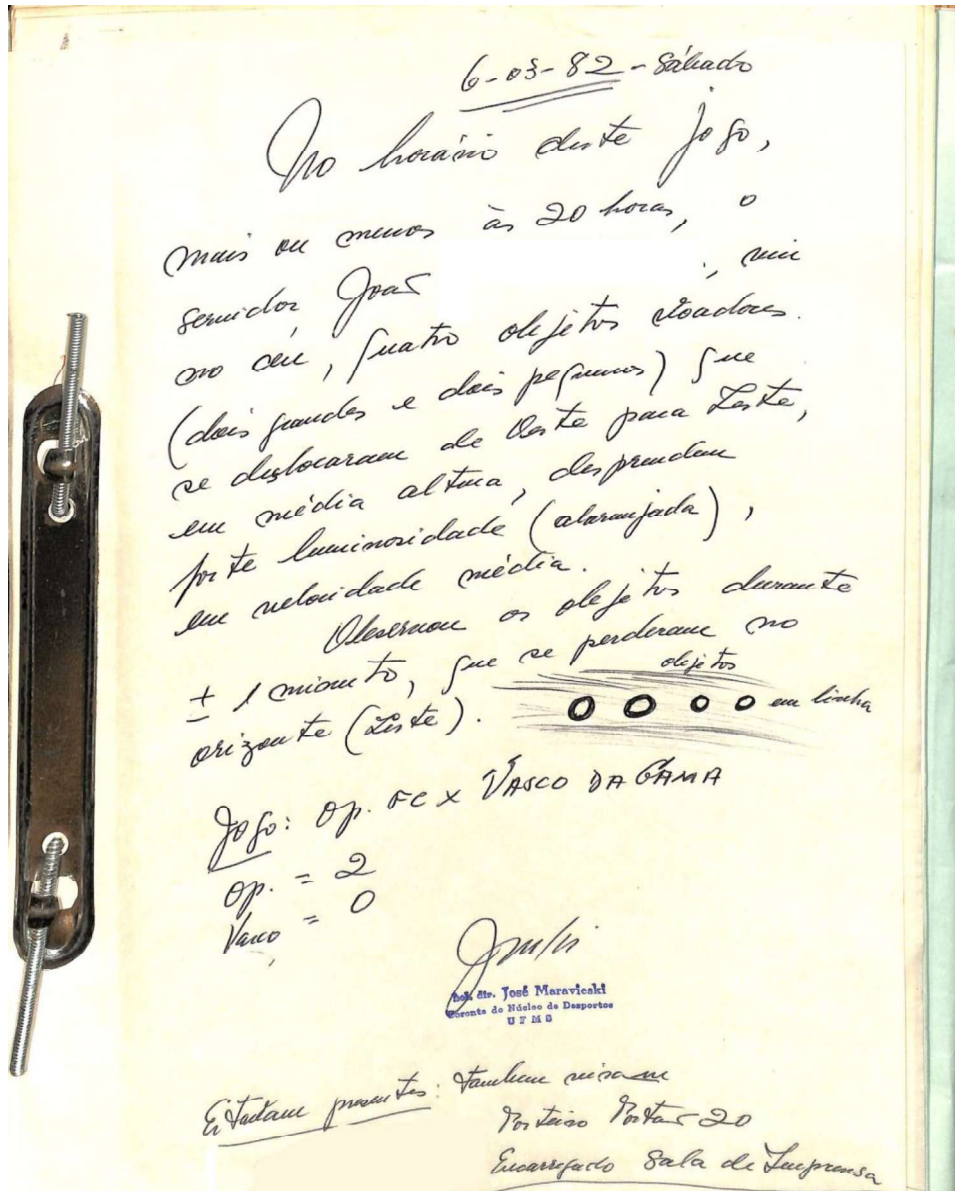 6-03-82 - Sábado
No horário deste jogo,
mais ou menos às 20 horas, o
servidor João , viu
no céu, quatro objetos voadores.
(dois grandes e dois pequenos) que
se deslocaram de Oeste para Leste,
em média altura, desprendem
forte luminosidade (alaranjada),
em velocidade média.
Observou os objetos durante
± 1 minuto, que se perderam no
orizonte (Leste).
objetos
em linha
Jogo: Op. FC x VASCO DA GAMA
Op. = 2
Vasco = 0
dir. José Maravieski
Gerente do Núcleo de Desportos
UFMS
Estavam presentes: também viram
Porteiro Portão 20
Encarregado Sala de Imprensa